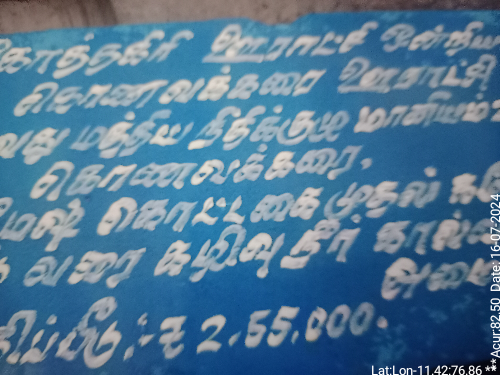 கோத்தகிரி ஊராட்சி ஒன்றிய
கொணவக்கரை ஊராட்சி
வது மத்திய நிதிக்குழு மானியம்
கொணவக்கரை,
கொட்டகை முதல்
வரை கழிவு நீர் கால்
அமை
திப்பீடு:-₹ 2.55.000.
Lat:Lon-11.42:76.86 **Acur:82.50 Date: 16-07-2024